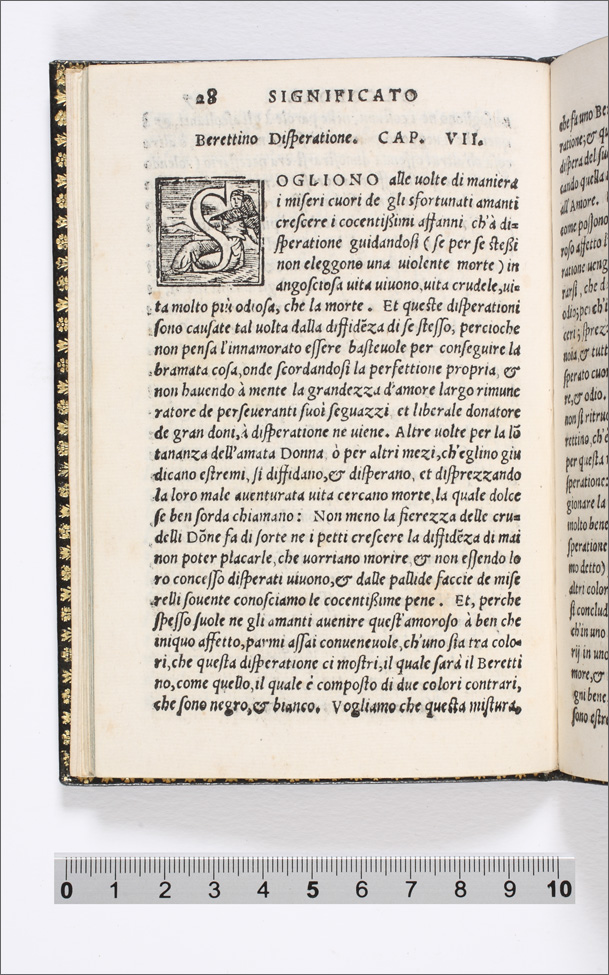 28 SIGNIFICATO
Berettino Disperatione. CAP. VII.
SOGLIONO alle uolte di maniera
i miseri cuori de gli sfortunati amanti
crescere i cocentißimi affanni, ch'à di=
speratione guidandosi (se per se steßi
non eleggono una uiolente morte) in
angosciosa uita uiuono, uita crudele, ui-
ta molto più odiosa, che la morte. Et queste disperationi
sono causate tal uolta dalla diffidẽza di se stesso, percioche
non pensa l'innamorato essere basteuole per conseguire la
bramata cosa, onde scordandosi la perfettione propria, &
non hauendo à mente la grandezza d'amore largo rimune
ratore de perseueranti suoi seguazzi, et liberale donatore
de gran doni, à disperatione ne uiene. Altre uolte per la lõ
tananza dell'amata Donna, ò per altri mezi, ch'eglino giu
dicano estremi, si diffidano, & disperano, et disprezzando
la loro male auenturata uita cercano morte, la quale dolce
se ben sorda chiamano: Non meno la fierezza delle cru=
delli Dõne fa di sorte ne i petti crescere la diffidẽza di mai
non poter placarle, che uorriano morire, & non essendo lo
ro concesso disperati uiuono, & dalle pallide faccie de mise
relli souente conosciamo le cocentißime pene. Et, perche
spesso suole ne gli amanti auenire quest'amoroso à ben che
iniquo affetto, parmi assai conueneuole, ch'uno sia tra colo-
ri, che questa disperatione ci mostri, il quale sarà il Beretti
no, come quello, il quale è composto di due colori contrari,
che sono negro, & bianco. Vogliamo che questa mistura,
0 1 2 3 4 5 6 7 8 9 10